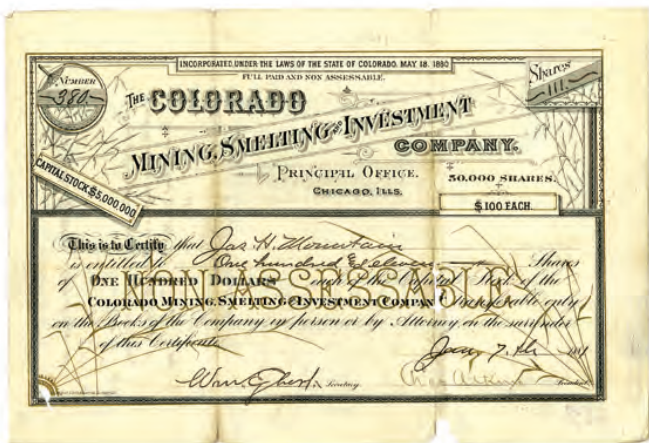 INCORPORATED, UNDER THE LAWS OF THE STATE OF COLORADO. MAY. 18. 1880
FULL PAID AND NON ASSESSABLE.
NUMBER
380
Shares
111.
THE COLORADO
MINING, SMELTING AND INVESTMENT
COMPANY.
PRINCIPAL OFFICE.
CHICAGO, ILLS.
50.000 SHARES.
$100 EACH.
CAPITAL STOCK $5,000,000.
NON ASSESSABLE.
This is to Certify that Jas H. Mountain
is entitled to One hundred Eleven Shares
of ONE HUNDRED DOLLARS each of the Capital Stock of the
COLORADO MINING, SMELTING AND INVESTMENT COMPANY Transferable only
on the Books of the Company in person or by Attorney on the surrender
of this Certificate
Jany 7th
Secretary
President